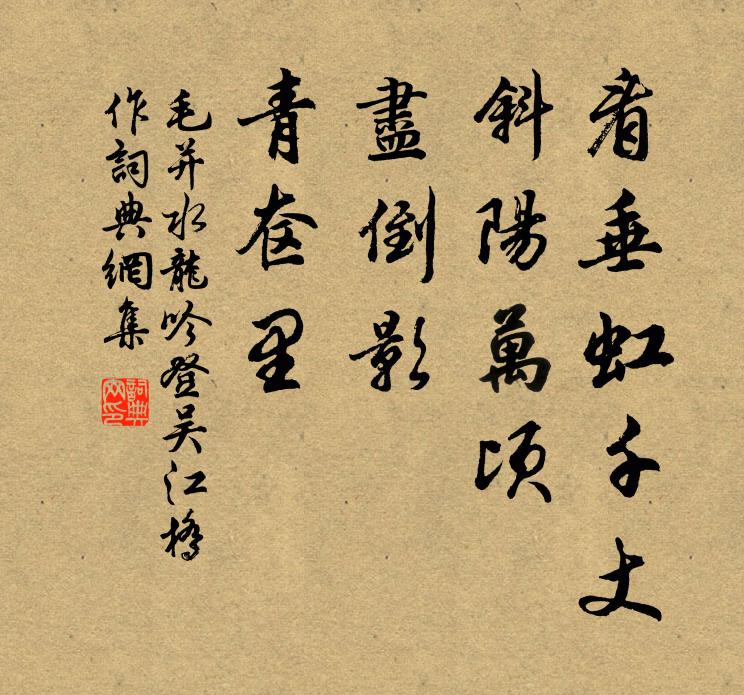 看垂虹千丈
斜陽萬頃
盡倒影
青奁里
毛并水龍吟登吳江橋
作詞典網集
詞典
网印